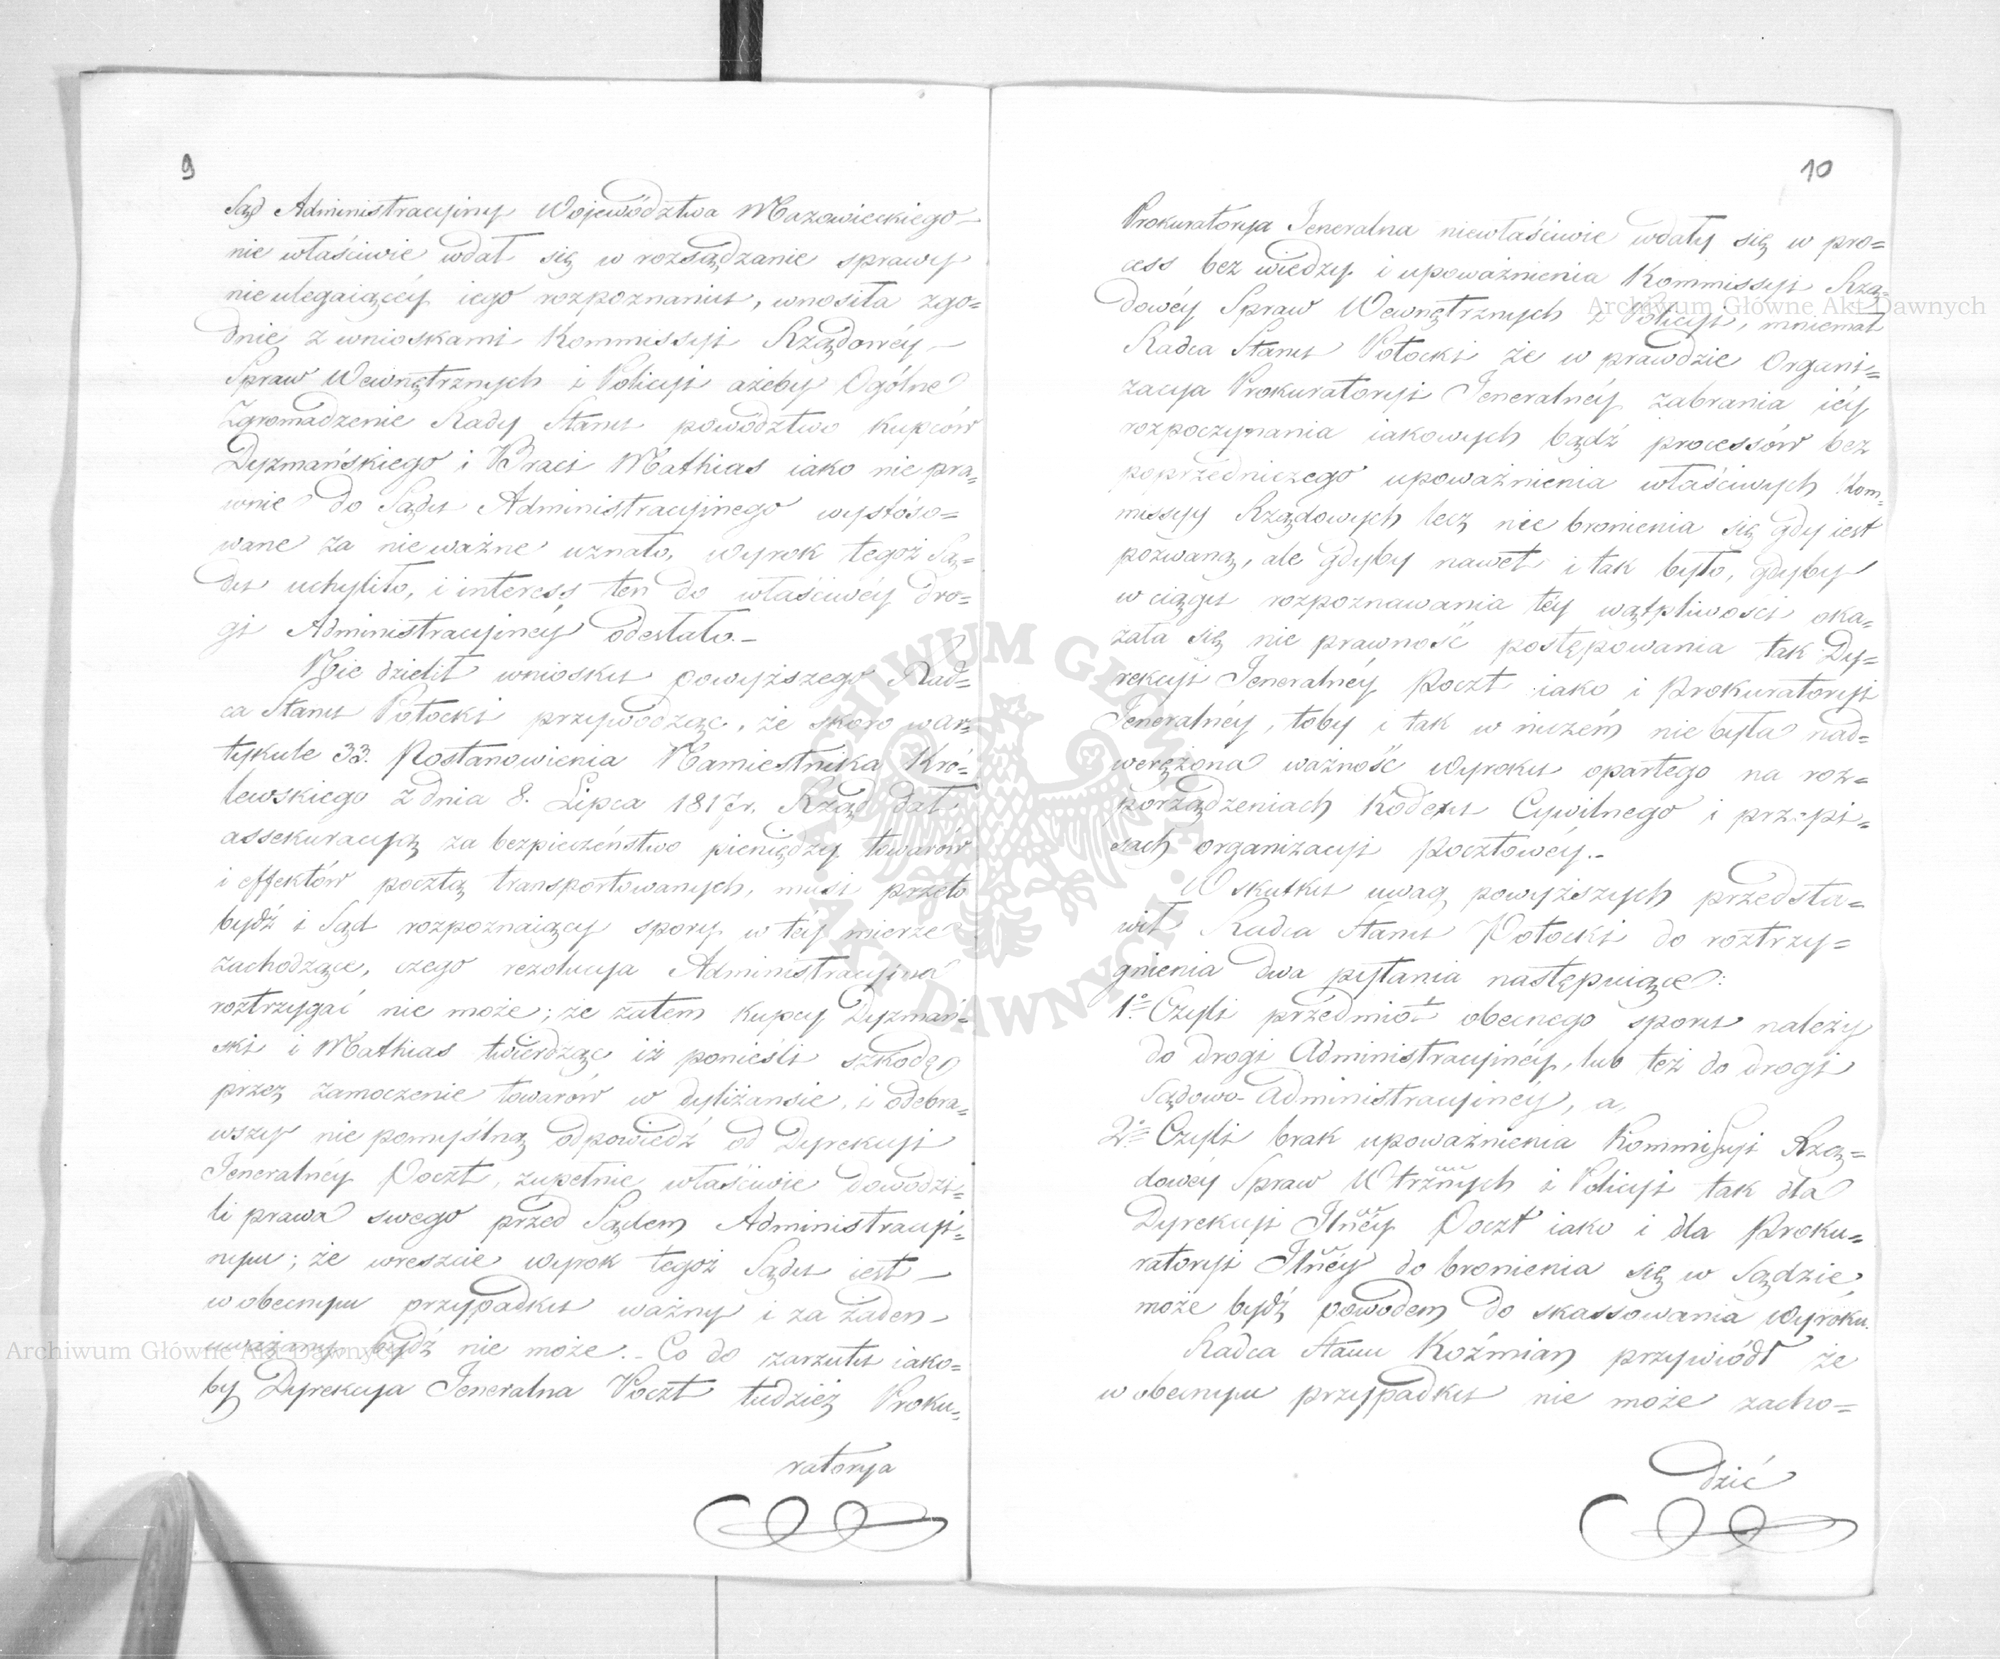 9
Sąd Administracyiny Województwa Mazowieckiego
nie właściwie wdał się w rozsądzanie sprawy
nieulegaiącéy iego rozpoznaniu, wnosiła zgo=
dnie z wnioskami Kommissyi Rządowéy
Spraw Wewnętrznych i Policyi ażeby Ogólne
Zgromadzenie Rady Stanu powództwo Kupców
Dyzmańskiego i Braci Mathias iako nie pra=
wnie do Sądu Administracyinego wystóso=
wane za nieważne uznało, wyrok tegoż Są=
du uchyliło, i interess ten do właściwéy dro=
gi Administracyinéy odesłało.
Nie dzielił wniosku powyższego Rad=
ca Stanu Potocki przywodząc, że skoro w ar=
tykule 33. Postanowienia Namiestnika Kró=
lewskiego z dnia 8. Lipca 1817 r. Rząd dał
assekuracyą za bezpieczeństwo pieniędzy towarów
i effektów pocztą transportowanych, musi przeto
bydź i Sąd rozpoznaiący spory w téy mierze
zachodzące, czego rezolucya Administracyina
roztrzygać nie może; że zatem kupcy Dyzmań=
ski i Mathias twierdząc iż ponieśli szkodę
przez zamoczenie towarów w dyliżansie, i odebra=
wszy niepomyślną odpowiedź od Dyrekcyi
Jeneralnéy Poczt, zupełnie właściwie dowodzi=
li prawa swego przed Sądem Administracyi=
nym; że wreszcie wyrok tegoż Sądu iest
w obecnym przypadku ważny i za żaden
uważany bydź nie może. Co do zarzutu iako=
by Dyrekcya Jeneralna Poczt tudzież Proku=
ratorya
10
Prokuratorya Jeneralna niewłaściwie wdały się w pro=
cess bez wiedzy i upoważnienia Kommissyi Rzą=
dowéy Spraw Wewnętrznych i Policyi, mniemał
Radca Stanu Potocki że w prawdzie Organi=
zacya Prokuratoryi Jeneralnéy zabrania iéy
rozpoczynania iakowych bądź processów bez
poprzedniczego upoważnienia właściwych Kom=
missyy Rządowych lecz nie bronienia się gdy iest
pozwaną, ale gdyby nawet i tak było, gdyby
w ciągu rozpoznawania téy wątpliwości oka=
zała się nie prawność postępowania tak Dy=
rekcyi Jeneralnéy Poczt iako i Prokuratoryi
Jeneralnéy, toby i tak w niczém nie była nad=
weręzona ważność wyroku opartego na roz=
porządzeniach Kodexu Cywilnego i przepi=
sach organizacyi Pocztowéy.
W skutku uwag powyższych przedsta=
wił Radca Stanu Potocki do roztrzy=
gnienia dwa pytania następuiące:
1º Czyli przedmiot obecnego sporu należy
do drogi Administracyinéy, lub téż do drogi
Sądowo-Administracyinéy, a
2º Czyli brak upoważnienia Kommissyi Rzą=
dowéy Spraw Wtrznych i Policyi tak dla
Dyrekcyi Jlnéy Poczt iako i dla Proku=
ratoryi Jlnéy do bronienia się w Sądzie
może bydź powodem do skassowania Wyroku.
Radca Stanu Koźmian przywiódł że
w obecnym przypadku nie może zacho=
dzić
Archiwum Główne Akt Dawnych
Archiwum Główne Akt Dawnych
ARCHIWUM GŁÓWNE AKT DAWNYCH